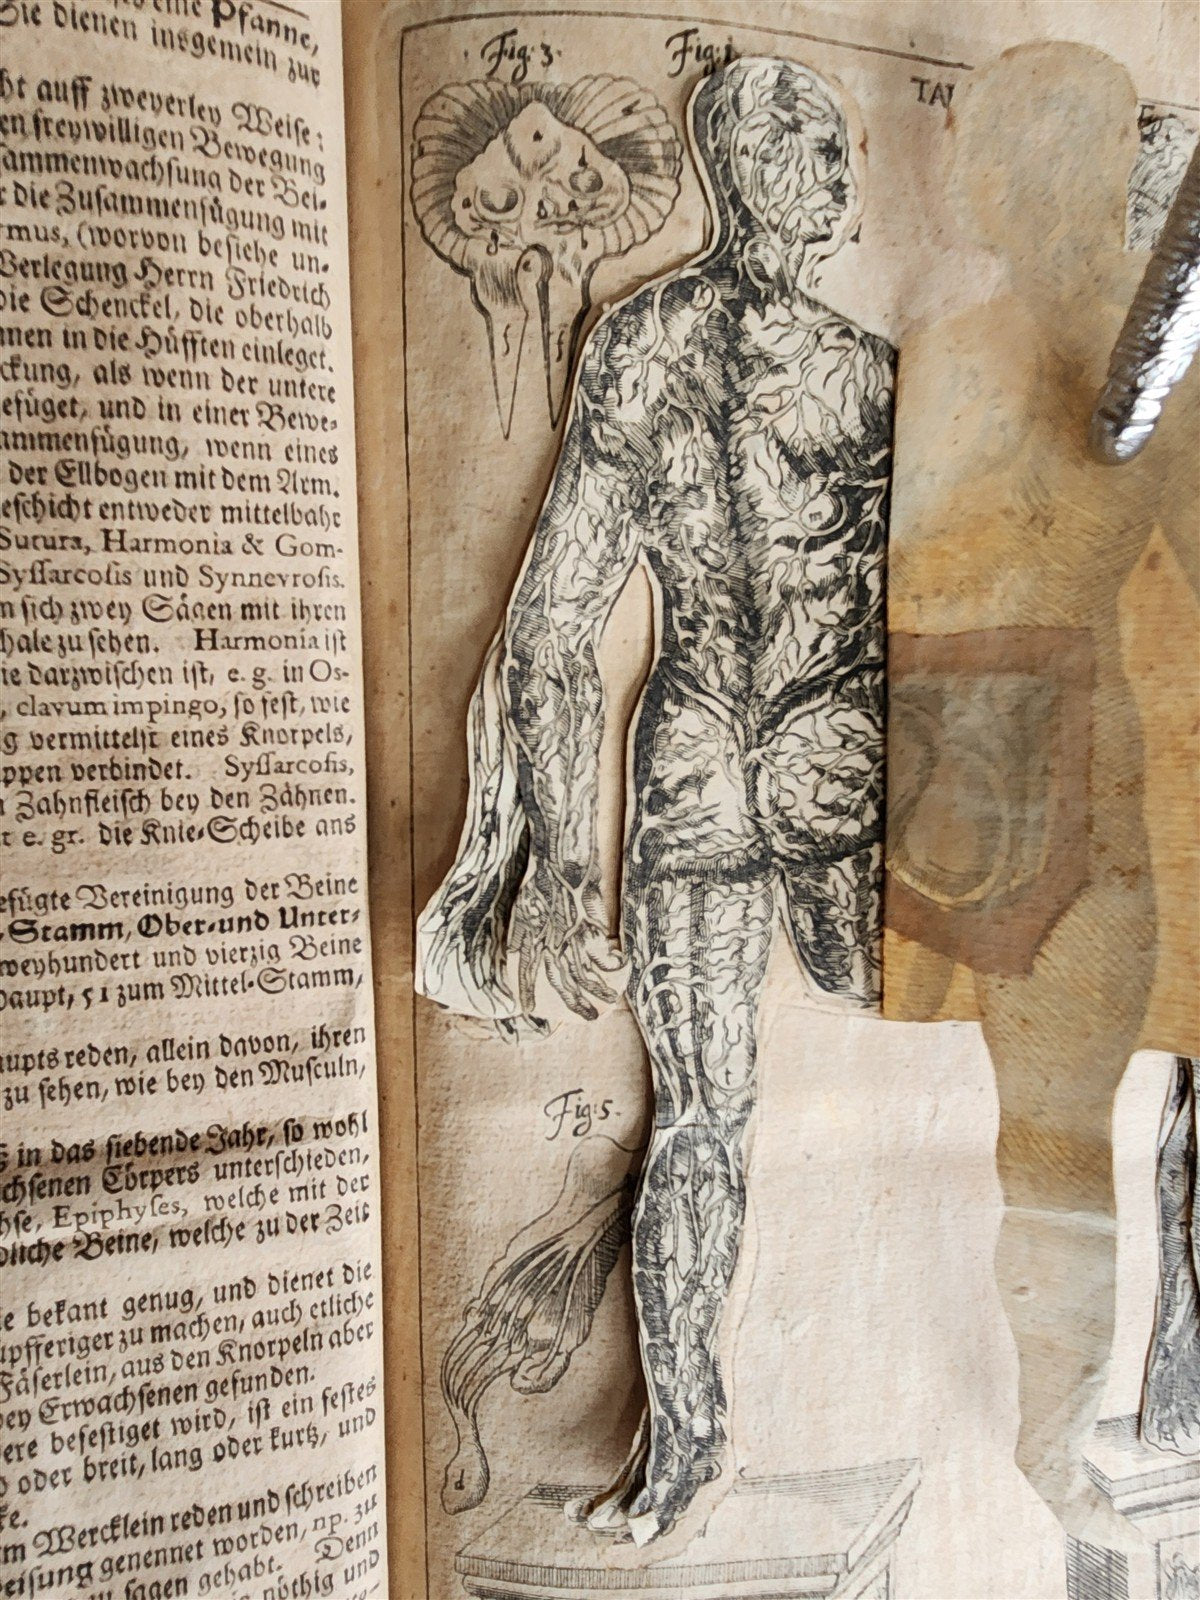 eine Pfanne,
Sie dienen insgemein zur
ht auff zweyerley Weise:
en freywilligen Bewegung
sammenwachsung der Bei-
r die Zusammenfügung mit
rmus, (worvon besiehe un-
Verlegung Herrn Friedrich
die Schenckel, die oberhalb
nnen in die Hüfften einleget.
ckung, als wenn der untere
efüget, und in einer Bewe-
ammenfügung, wenn eines
der Ellbogen mit dem Arm.
eschicht entweder mittelbahr
Sutura, Harmonia & Gom-
Syssarcosis und Synnevrosis.
n sich zwey Sägen mit ihren
hale zu sehen. Harmonia ist
ie darzwischen ist, e. g. in Os-
, clavum impingo, so fest, wie
g vermittelst eines Knorpels,
ppen verbindet. Syssarcosis,
n Zahnfleisch bey den Zähnen.
t e. gr. die Knie-Scheibe ans
efügte Vereinigung der Beine
Stamm, Ober- und Unter-
weyhundert und vierzig Beine
Haupt, 51 zum Mittel-Stamm,
aupts reden, allein davon, ihren
zu sehen, wie bey den Musculn,
ß in das siebende Jahr, so wohl
chsenen Cörpers unterschieden,
hse, Epiphyses, welche mit der
dliche Beine, welche zu der Zeit
ie bekant genug, und dienet die
upfferiger zu machen, auch etliche
Fäserlein, aus den Knorpeln aber
bey Erwachsenen gefunden.
ere befestiget wird, ist ein festes
d oder breit, lang oder kurtz, und
ke.
m Wercklein reden und schreiben
eisung genennet worden, np. zu
zu sagen gehabt. Denn
nöthig und
Fig: 3.
Fig: 1.
TA
Fig: 5.
d